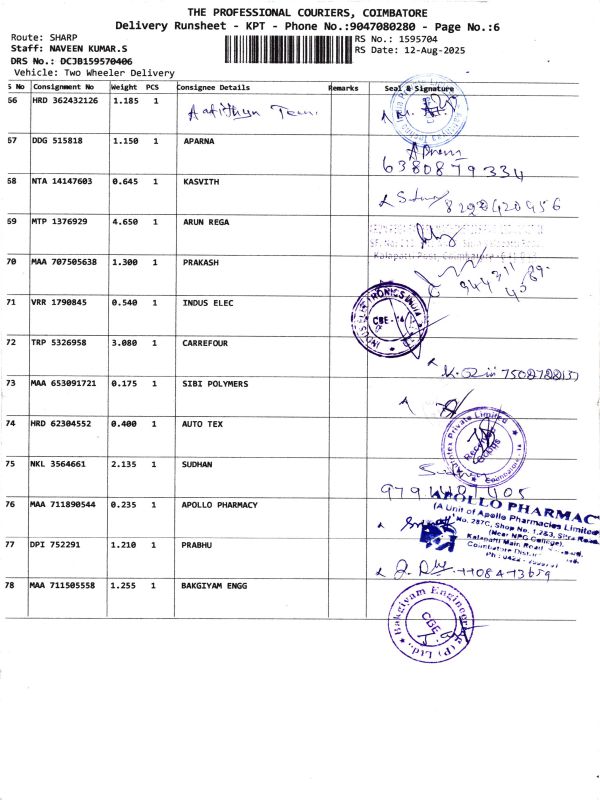 THE PROFESSIONAL COURIERS, COIMBATORE
Delivery Runsheet - KPT - Phone No.:9047080280 - Page No.:6
Route: SHARP
RS No.: 1595704
Staff: NAVEEN KUMAR.S
RS Date: 12-Aug-2025
DRS No.: DCJB159570406
Vehicle: Two Wheeler Delivery
S No Consignment No Weight PCS Consignee Details Remarks Seal & Signature
66 HRD 362432126 1.185 1
67 DDG 515818 1.150 1 APARNA
6380879334
68 NTA 14147603 0.645 1 KASVITH
8220420456
69 MTP 1376929 4.650 1 ARUN REGA
Kalapatti Post, Coimbatore
70 MAA 707505638 1.300 1 PRAKASH
71 VRR 1790845 0.540 1 INDUS ELEC
INDUS ELECTRONICS INDIA
CBE - 14
72 TRP 5326958 3.080 1 CARREFOUR
73 MAA 653091721 0.175 1 SIBI POLYMERS
74 HRD 62304552 0.400 1 AUTO TEX
Private Limited
Coimbatore
75 NKL 3564661 2.135 1 SUDHAN
76 MAA 711890544 0.235 1 APOLLO PHARMACY
APOLLO PHARMAC
(A Unit of Apollo Pharmacies Limited
No. 287C, Shop No. 1,2&3, Sitra Road,
(Near NPG College),
Kalapatti Main Road
77 DPI 752291 1.210 1 PRABHU
78 MAA 711505558 1.255 1 BAKGIYAM ENGG
Bakgiyam Engineering (P) Ltd.,
CBE